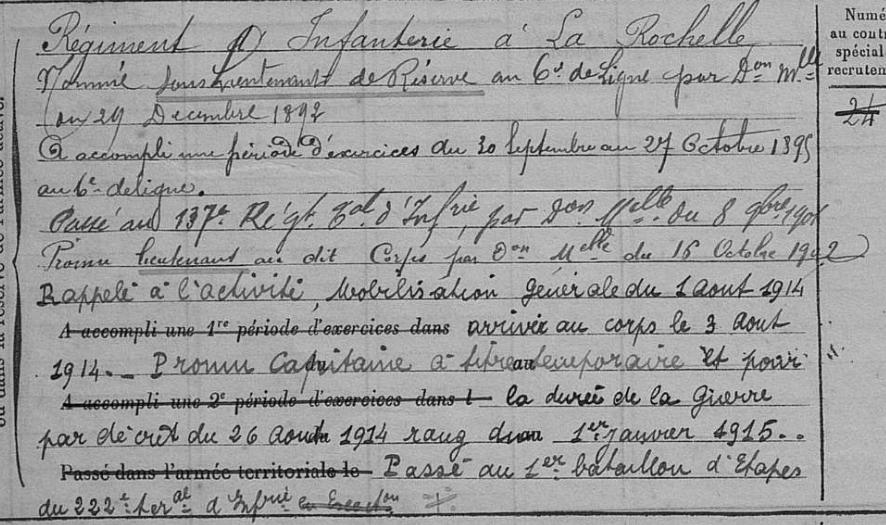 Régiment d'Infanterie à La Rochelle
Nommé sous Lieutenant de Réserve au 6e de Ligne par Don Mlle
du 29 Decembre 1892
A accompli une période d'exercices du 30 Septembre au 27 Octobre 1895
au 6e de ligne.
Passé au 137e Régt Tal d'Infrie, par Don Melle du 8 9bre 1901
Promu lieutenant au dit Corps par Don Melle du 16 Octobre 1902
Rappelé à l'activité, Mobilisation générale du 1 aout 1914
A accompli une 1re période d'exercices dans arrivée au corps le 3 Aout
1914. _ Promu Capitaine à titre temporaire et pour
A accompli une 2e période d'exercices dans l la durée de la Guerre
par décret du 26 Aout 1914 rang du 1er janvier 1915..
Passé dans l'armée territoriale le Passé au 1er bataillon d'Etapes
du 222e teral d'Infrie
ou dans la réserve de l'armée active.
Numé
au contr
spécial
recrutem
24